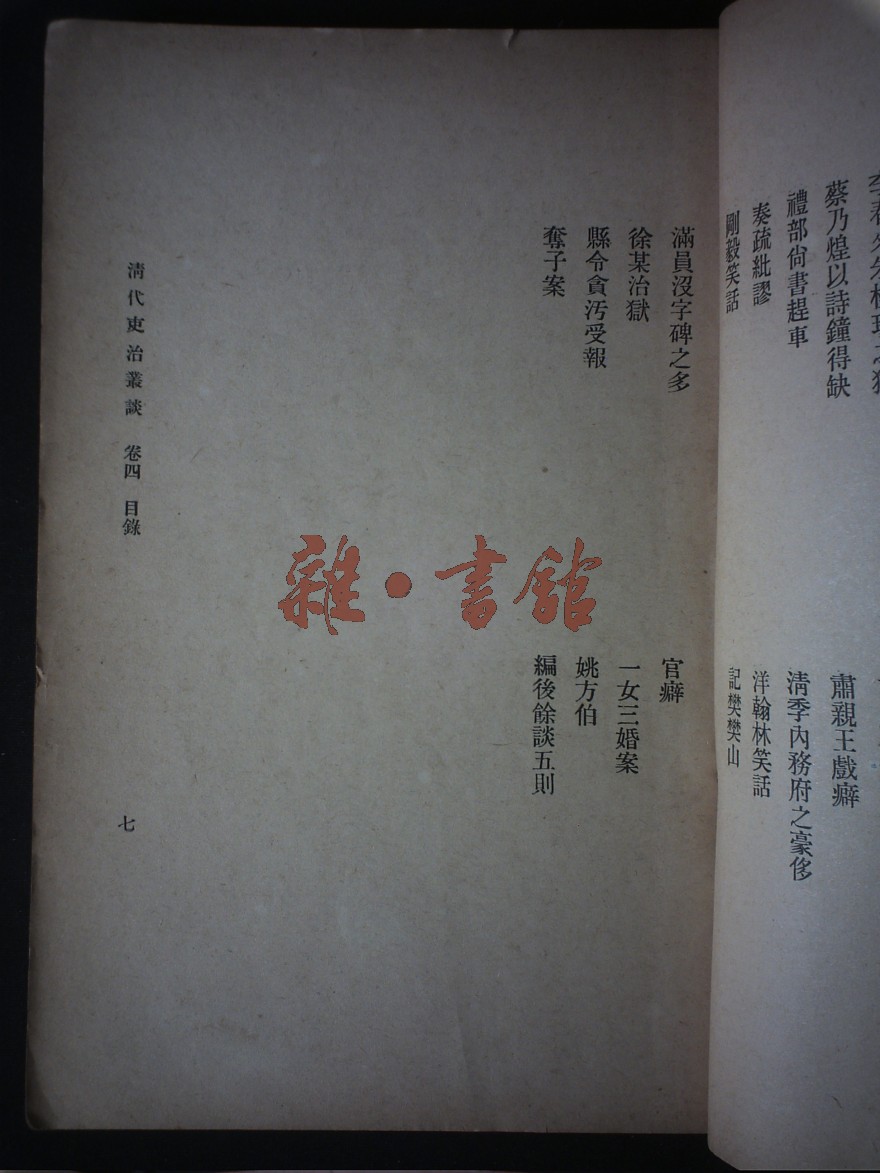 蔡乃煌以詩鐘得缺
肅親王戲癖
禮部尙書趕車
淸季內務府之豪侈
奏疏紕謬
洋翰林笑話
剛毅笑話
記樊樊山
滿員沒字碑之多
官癖
徐某治獄
一女三婚案
縣令貪汚受報
姚方伯
奪子案
編後餘談五則
淸代吏治叢談 卷四 目錄
七
雜·書館